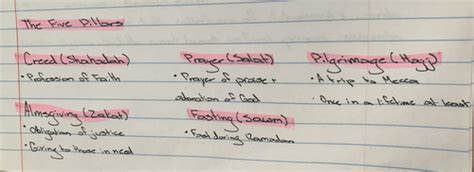 The Five Pillars
Creed (Shahadah)
• Profession of Faith
Prayer (Salat)
• Prayer of praise +
adoration of God
Pilgrimage (Hajj)
• A trip to Mecca
• Once in a lifetime at least
Almsgiving (Zakat)
• Obligation of justice
• Giving to those in need
Fasting (Sawm)
• Fast during Ramadan